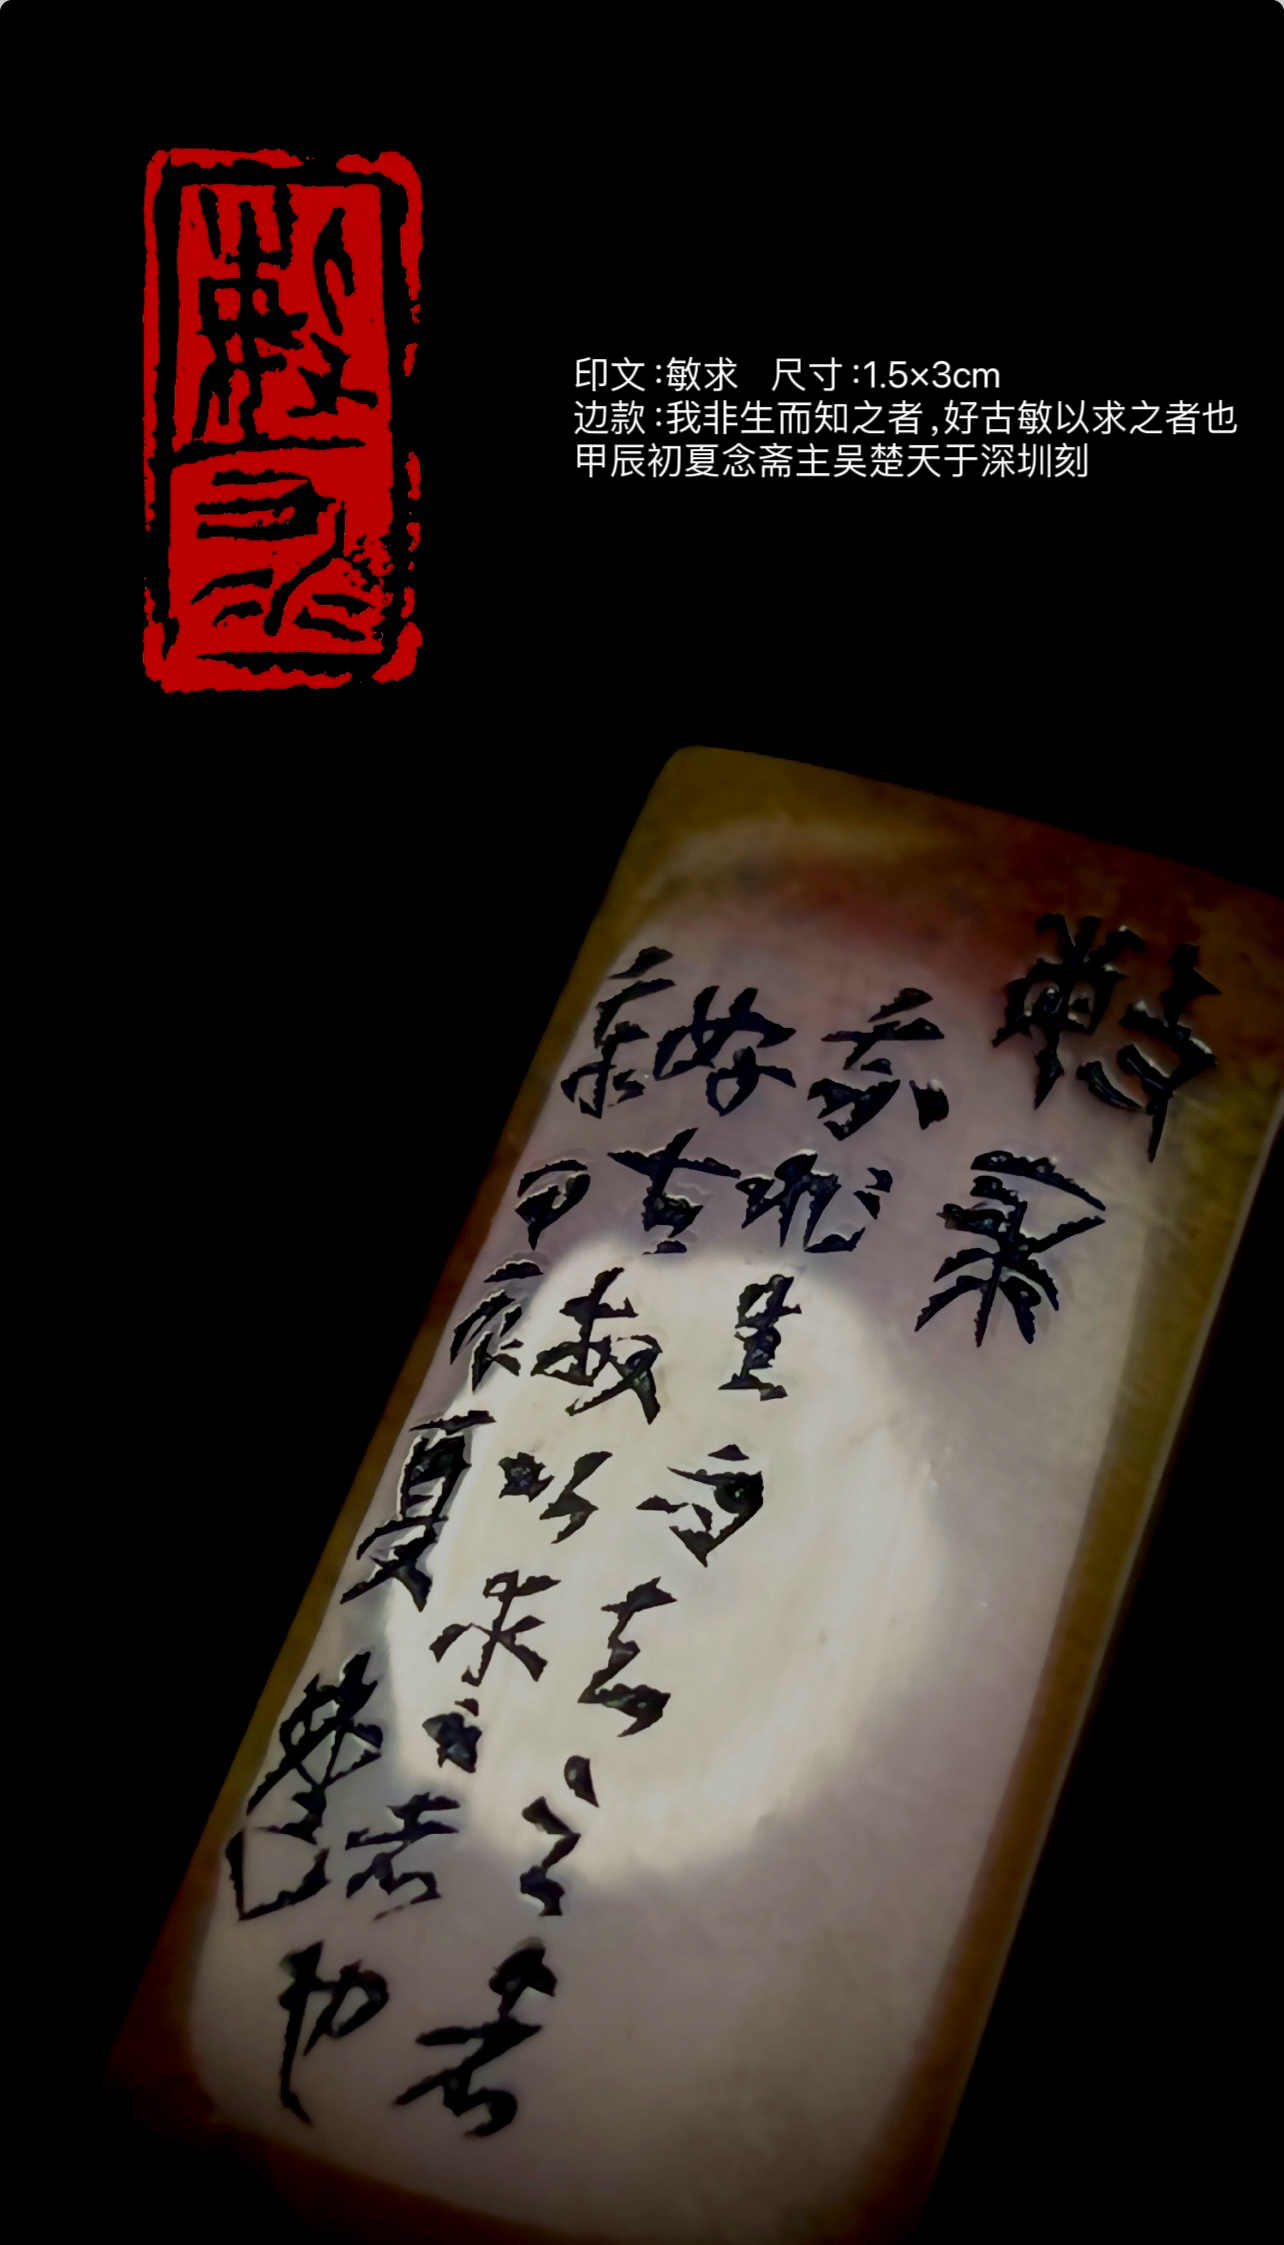 敏求
印文:敏求 尺寸:1.5×3cm
边款:我非生而知之者,好古敏以求之者也
甲辰初夏念斋主吴楚天于深圳刻
敏求
我非生而知之者
好古敏以求之者也
甲辰夏楚